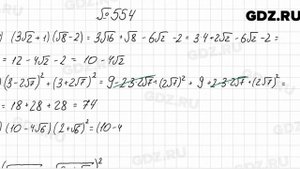 № 554
GDZ.RU
) (3√2 + 1)(√8 - 2) = 3√16 + √8 - 6√2 - 2 = 3·4 + 2√2 - 6√2 - 2 =
= 12 - 4√2 - 2 = 10 - 4√2
) (3 - 2√7)² + (3 + 2√7)² = 9 - 2·3·2√7 + (2√7)² + 9 + 2·3·2√7 + (2√7)² =
= 18 + 28 + 28 = 74
) (10 - 4√6)(2 + √6)² = (10 - 4
GDZ.RU